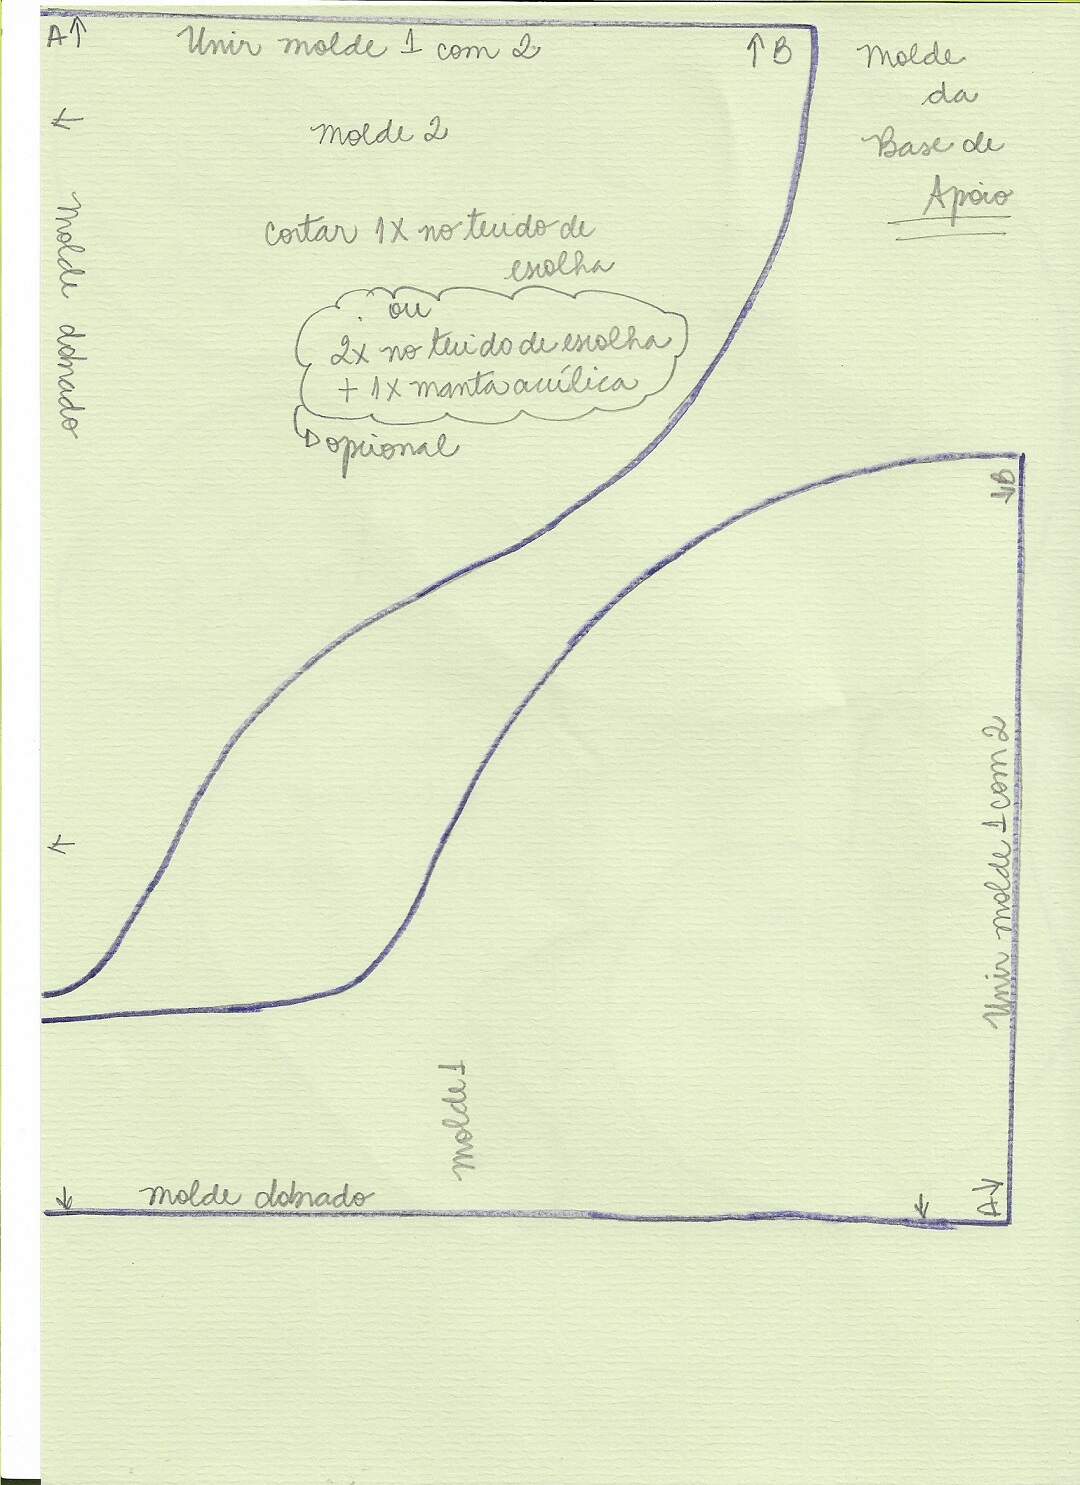 A↑ Unir molde 1 com 2 ↑B
Molde
da
Base de
Apoio
molde 2
molde dobrado
cortar 1x no tecido de
escolha
ou
2x no tecido de escolha
+ 1x manta acrílica
opcional
B
Unir molde 1 com 2
A
molde 1
molde dobrado